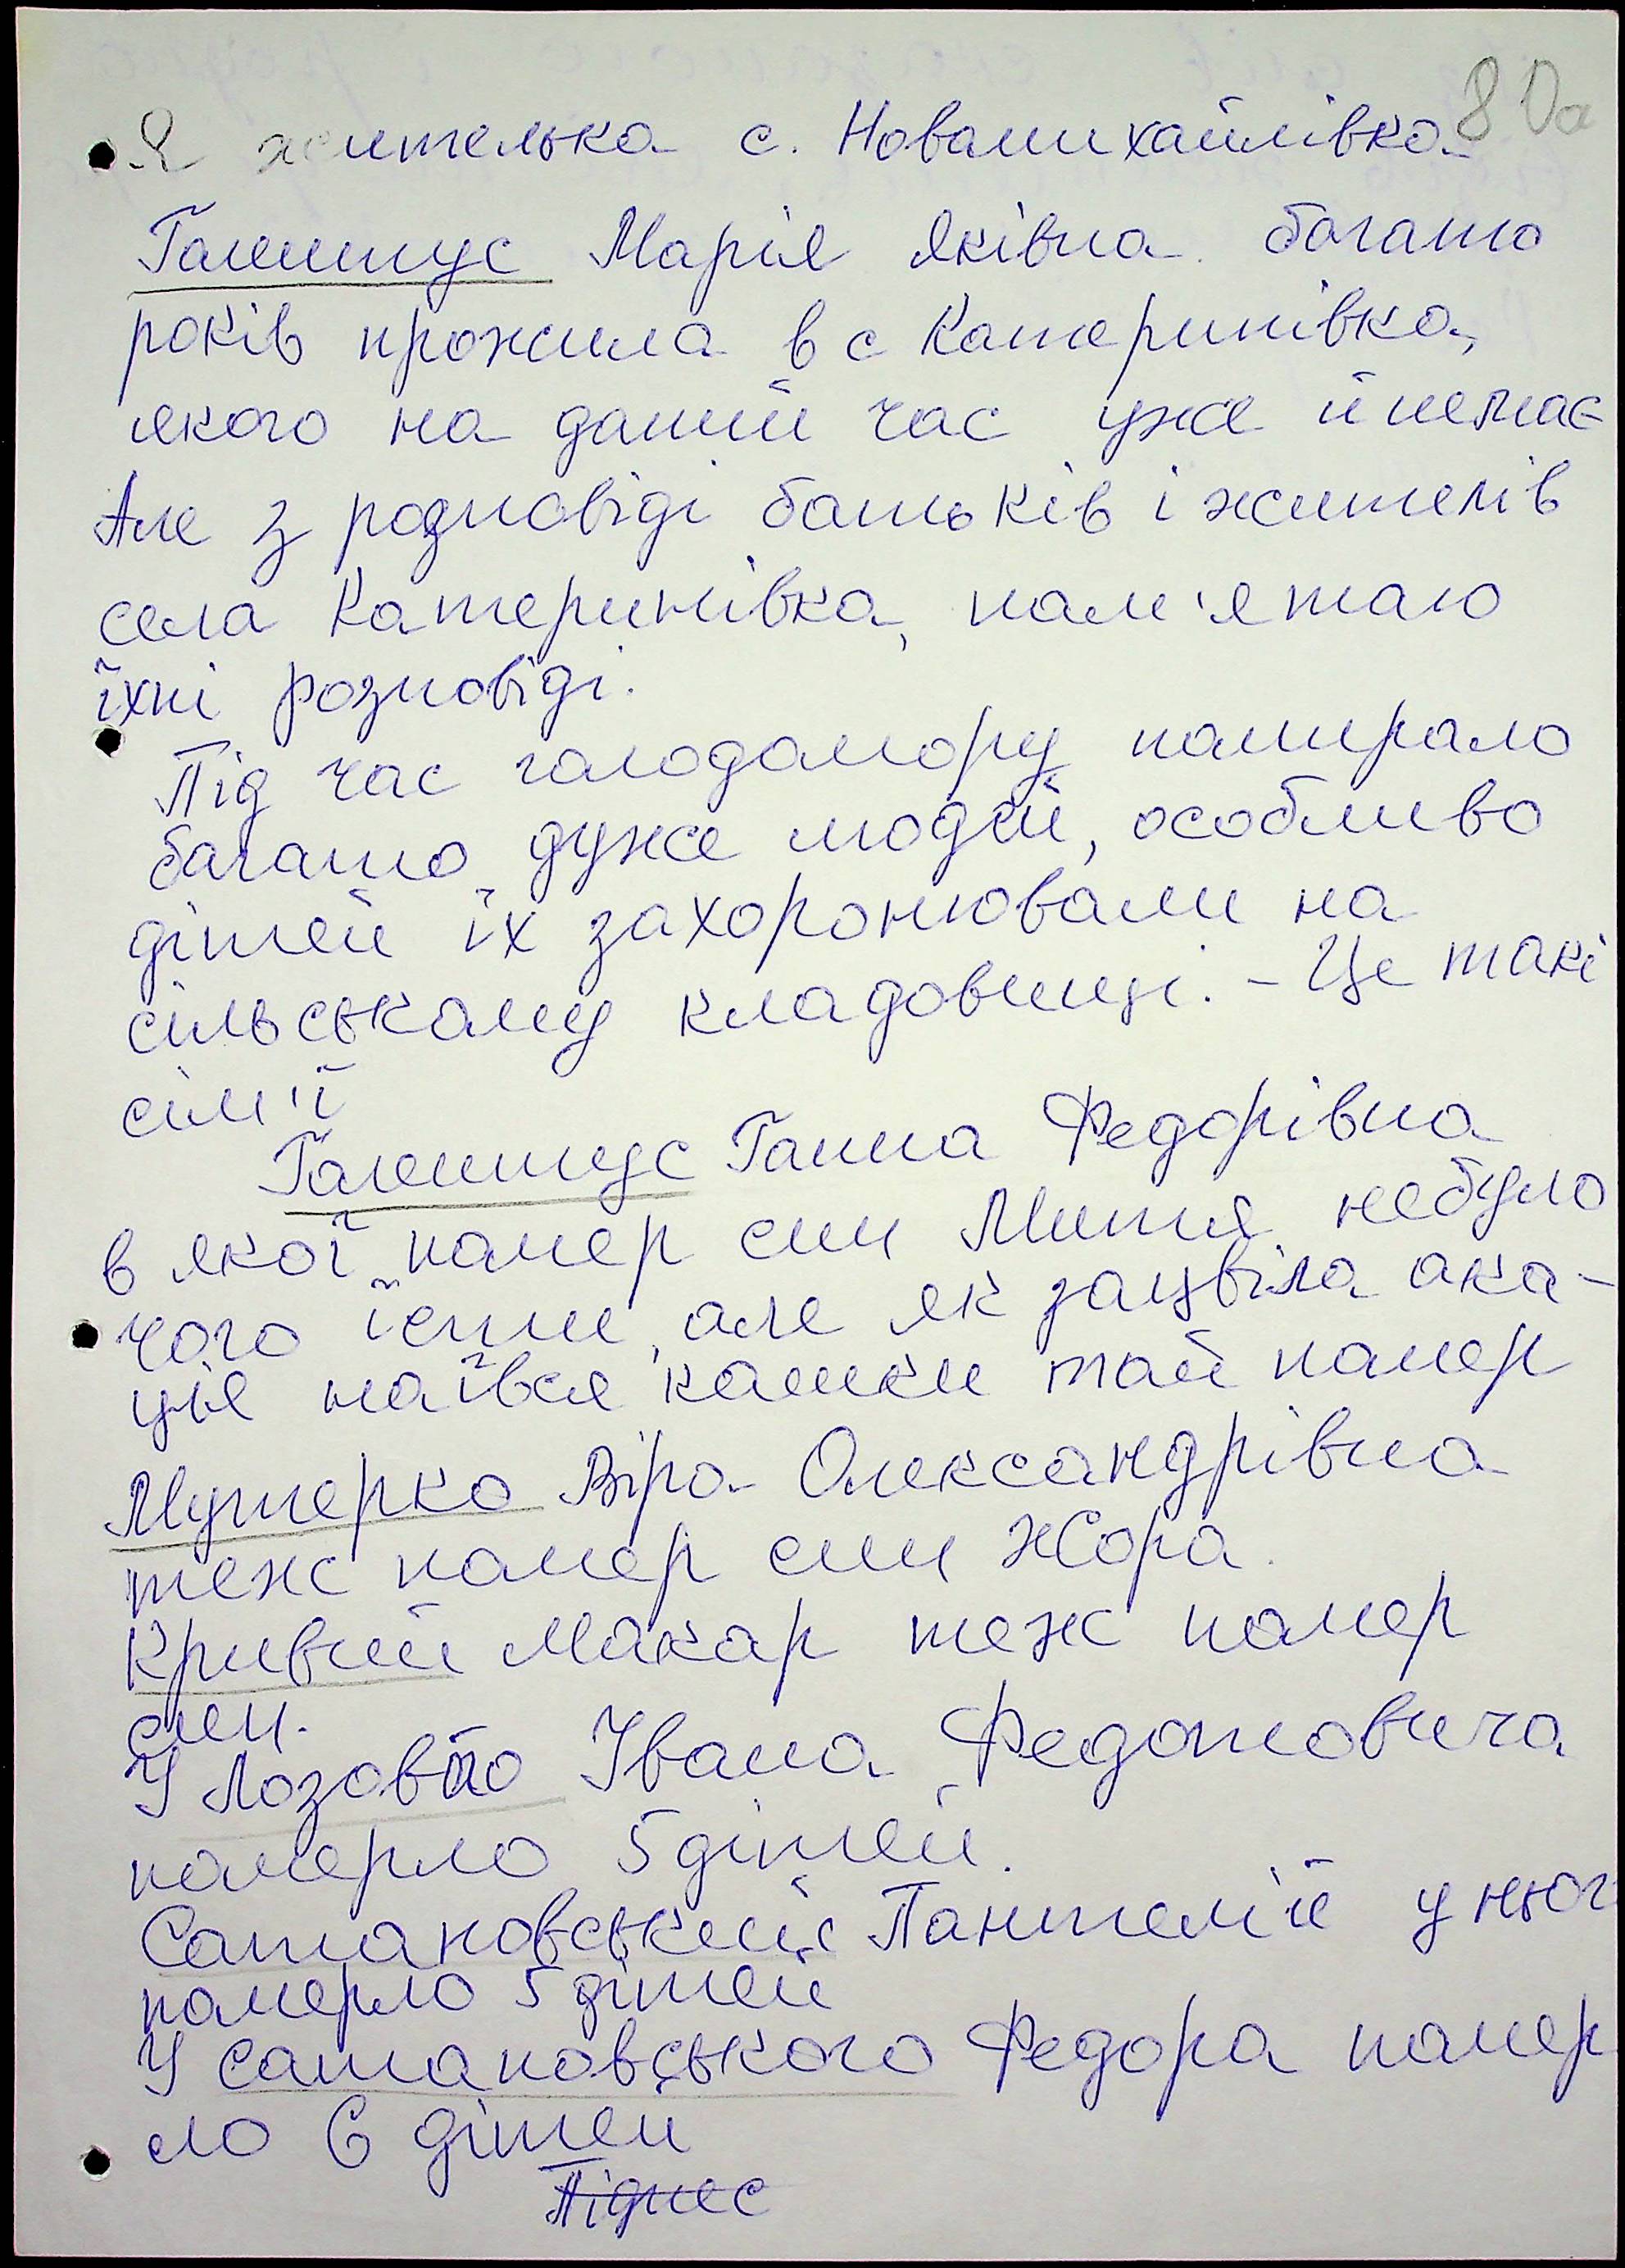 80а
Я жителька с. Новамихайлівка
Галентус Марія Яківна багато
років прожила в с Катеринівка,
якого на даний час уже й немає
Але з розповіді батьків і жителів
села Катеринівка, пам'ятаю
їхні розповіді.
Під час голодомору помирало
багато дуже людей, особливо
дітей їх захоронювали на
сільському кладовищі. - Це такі
сім'ї
Галентус Ганна Федорівна
в якої помер син Митя небуло
чого їсти, але як зацвіла ака-
ція наївся кашки тай помер
Мутерко Віра Олександрівна
теж помер син Жора.
Кривий Макар теж помер
син.
У Лозово Івана Федотовича
померло 5 дітей.
Сатановський Пантелій у нюг
померло 5 дітей
У Сатановського Федора помер
ло 6 дітей
Підпис